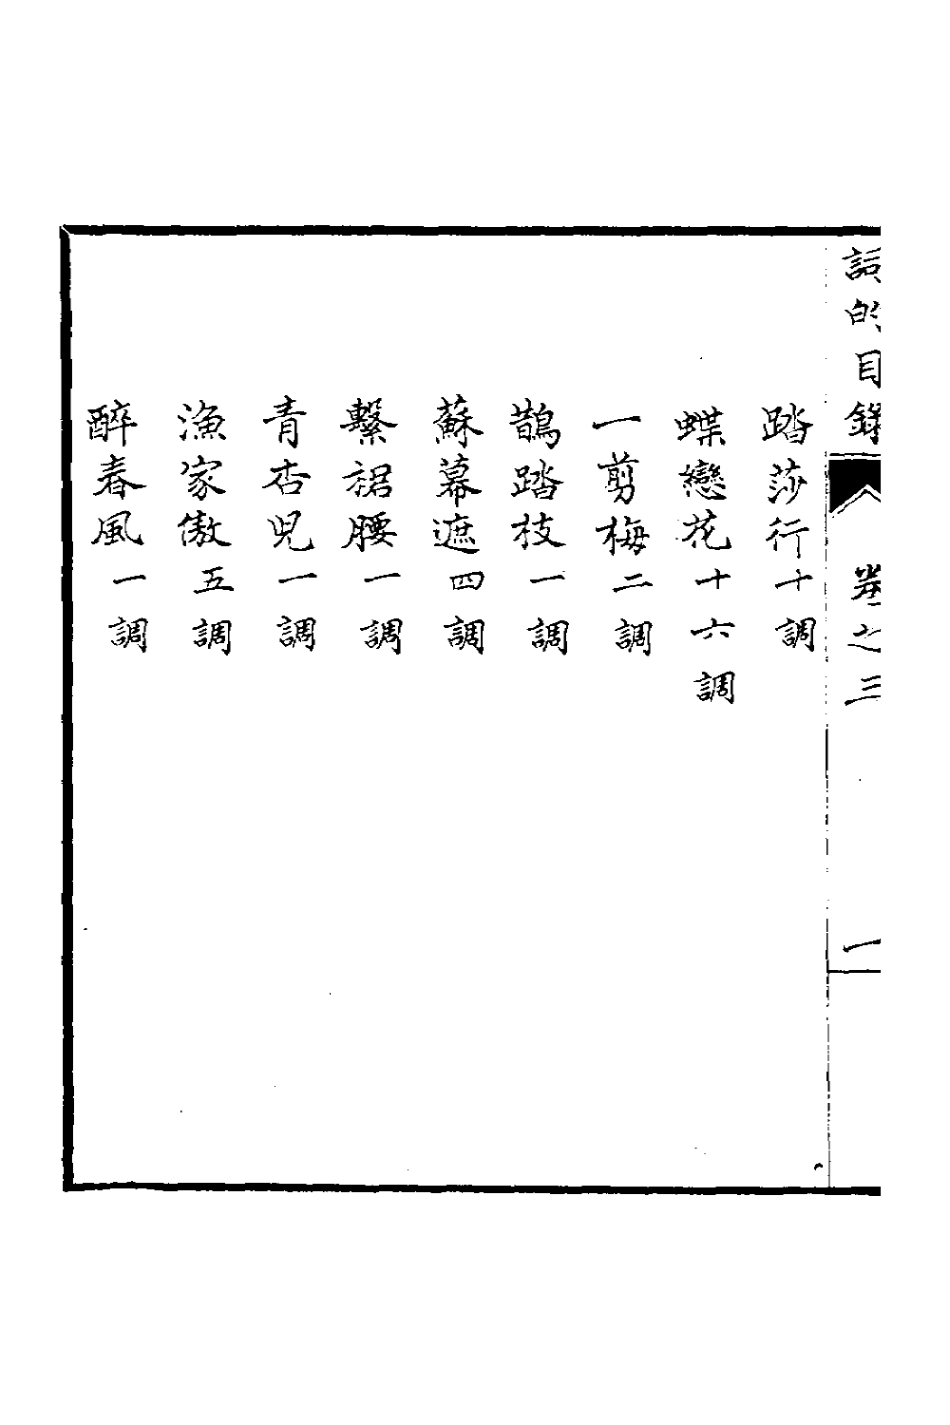 詞的目錄 卷之三 一
踏莎行十調
蝶戀花十六調
一剪梅二調
鵲踏枝一調
蘇幕遮四調
繫裙腰一調
青杏兒一調
漁家傲五調
醉春風一調